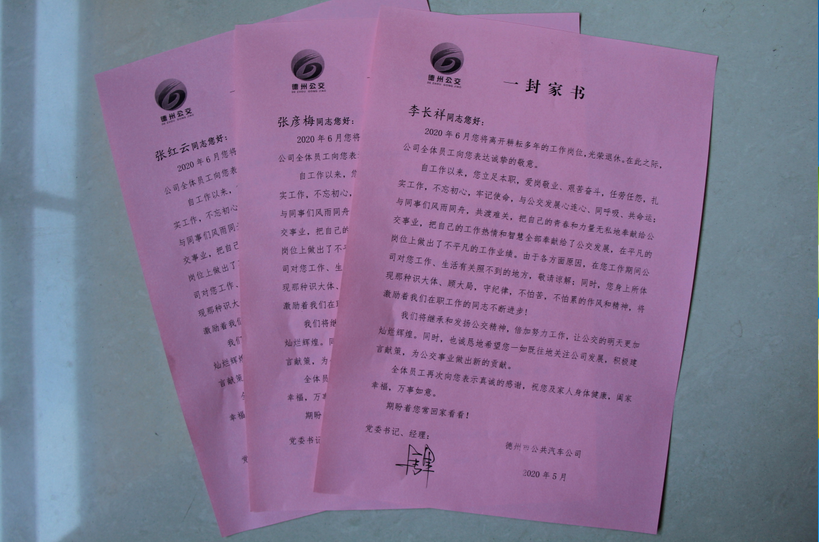 德州公交
张红云同志您好:
2020年6月您将
公司全体员工向您表
自工作以来,
实工作,不忘初心,
与同事们风雨同
交事业,把自己
岗位上做出了
司对您工作、
现那种识大体
激励着我们
我们
灿烂辉煌。
言献策,
全
幸福,
党
德州公交
张彦梅同志您好:
2020年6月您将
公司全体员工向您表
自工作以来,您
实工作,不忘初心,
与同事们风雨同舟,
交事业,把自己的
岗位上做出了不平
司对您工作、生
现那种识大体、
激励着我们在
我们将继
灿烂辉煌。同
言献策,为
全体员
幸福,万事
期盼着
党委书记
德州公交
一封家书
李长祥同志您好:
2020年6月您将离开耕耘多年的工作岗位,光荣退休,在此之际,
公司全体员工向您表达诚挚的敬意。
自工作以来,您立足本职,爱岗敬业、艰苦奋斗,任劳任怨,扎
实工作,不忘初心,牢记使命,与公交发展心连心、同呼吸、共命运;
与同事们风雨同舟,共渡难关,把自己的青春和力量无私地奉献给公
交事业,把自己的工作热情和智慧全部奉献给了公交发展,在平凡的
岗位上做出了不平凡的工作业绩。由于各方面原因,在您工作期间公
司对您工作、生活有关照不到的地方,敬请谅解;同时,您身上所体
现那种识大体、顾大局,守纪律,不怕苦,不怕累的作风和精神,将
激励着我们在职工作的同志不断进步!
我们将继承和发扬公交精神,倍加努力工作,让公交的明天更加
灿烂辉煌。同时,也诚恳地希望您一如既往地关注公司发展,积极建
言献策,为公交事业做出新的贡献。
全体员工再次向您表示真诚的感谢,祝您及家人身体健康,阖家
幸福,万事如意。
期盼着您常回家看看!
党委书记、经理:
德州市公共汽车公司
2020年5月